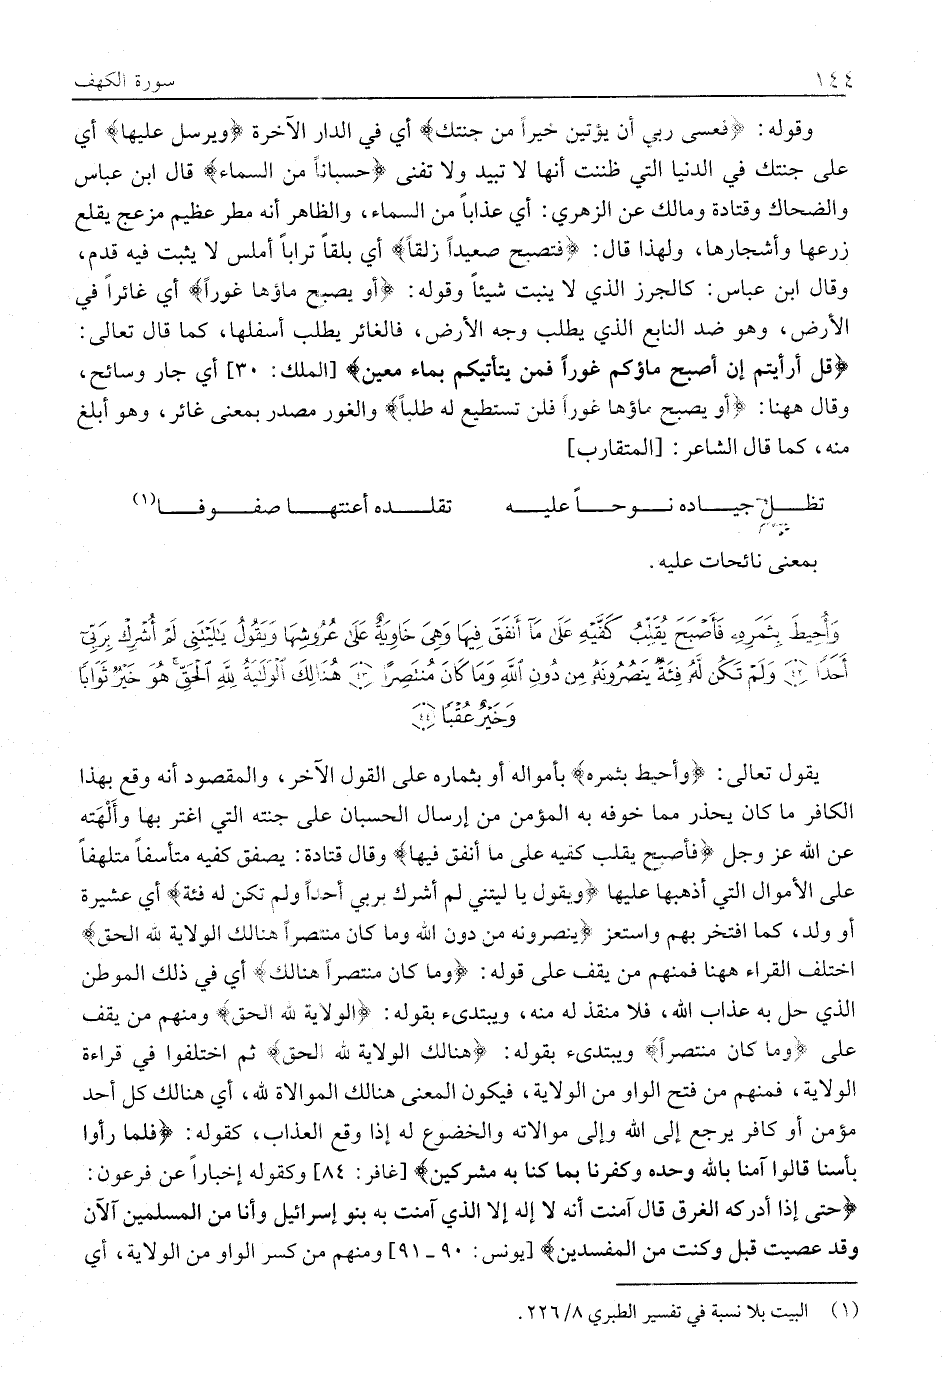 ١٤٤ سورة الكهف
وقوله: ﴿فعسى ربي أن يؤتين خيراً من جنتك﴾ أي في الدار الآخرة ﴿ويرسل عليها﴾ أي
على جنتك في الدنيا التي ظننت أنها لا تبيد ولا تفنى ﴿حسباناً من السماء﴾ قال ابن عباس
والضحاك وقتادة ومالك عن الزهري: أي عذاباً من السماء، والظاهر أنه مطر عظيم مزعج يقلع
زرعها وأشجارها، ولهذا قال: ﴿فتصبح صعيداً زلقاً﴾ أي بلقاً تراباً أملس لا يثبت فيه قدم،
وقال ابن عباس: كالجرز الذي لا ينبت شيئاً وقوله: ﴿أو يصبح ماؤها غوراً﴾ أي غائراً في
الأرض، وهو ضد النابع الذي يطلب وجه الأرض، فالغائر يطلب أسفلها، كما قال تعالى:
﴿قل أرأيتم إن أصبح ماؤكم غوراً فمن يتأتيكم بماء معين﴾ [الملك: ٣٠] أي جار وسائح،
وقال ههنا: ﴿أو يصبح ماؤها غوراً فلن تستطيع له طلباً﴾ والغور مصدر بمعنى غائر، وهو أبلغ
منه، كما قال الشاعر: [المتقارب]
تظل جياده نوحاً عليه تقلده أعنتها صفوفا(١)
بمعنى نائحات عليه.
وَأُحِيطَ بِثَمَرِهِ فَأَصْبَحَ يُقَلِّبُ كَفَّيْهِ عَلَىٰ مَا أَنفَقَ فِيهَا وَهِيَ خَاوِيَةٌ عَلَىٰ عُرُوشِهَا وَيَقُولُ يَٰلَيْتَنِي لَمْ أُشْرِكْ بِرَبِّيٓ
أَحَدًا ﴿٤٢﴾ وَلَمْ تَكُن لَّهُ فِئَةٌ يَنصُرُونَهُ مِن دُونِ ٱللَّهِ وَمَا كَانَ مُنتَصِرًا ﴿٤٣﴾ هُنَالِكَ ٱلْوَلَٰيَةُ لِلَّهِ ٱلْحَقِّ ۚ هُوَ خَيْرٌ ثَوَابًا
وَخَيْرٌ عُقْبًا ﴿٤٤﴾
يقول تعالى: ﴿وأحيط بثمره﴾ بأمواله أو بثماره على القول الآخر، والمقصود أنه وقع بهذا
الكافر ما كان يحذر مما خوفه به المؤمن من إرسال الحسبان على جنته التي اغتر بها وألْهَته
عن الله عز وجل ﴿فأصبح يقلب كفيه على ما أنفق فيها﴾ وقال قتادة: يصفق كفيه متأسفاً متلهفاً
على الأموال التي أذهبها عليها ﴿ويقول يا ليتني لم أشرك بربي أحداً ولم تكن له فئة﴾ أي عشيرة
أو ولد، كما افتخر بهم واستعز ﴿ينصرونه من دون الله وما كان منتصراً هنالك الولاية لله الحق﴾
اختلف القراء ههنا فمنهم من يقف على قوله: ﴿وما كان منتصراً هنالك﴾ أي في ذلك الموطن
الذي حل به عذاب الله، فلا منقذ له منه، ويبتدىء بقوله: ﴿الولاية لله الحق﴾ ومنهم من يقف
على ﴿وما كان منتصراً﴾ ويبتدىء بقوله: ﴿هنالك الولاية لله الحق﴾ ثم اختلفوا في قراءة
الولاية، فمنهم من فتح الواو من الولاية، فيكون المعنى هنالك الموالاة لله، أي هنالك كل أحد
مؤمن أو كافر يرجع إلى الله وإلى موالاته والخضوع له إذا وقع العذاب، كقوله: ﴿فلما رأوا
بأسنا قالوا آمنا بالله وحده وكفرنا بما كنا به مشركين﴾ [غافر: ٨٤] وكقوله إخباراً عن فرعون:
﴿حتى إذا أدركه الغرق قال آمنت أنه لا إله إلا الذي آمنت به بنو إسرائيل وأنا من المسلمين آلآن
وقد عصيت قبل وكنت من المفسدين﴾ [يونس: ٩٠ - ٩١] ومنهم من كسر الواو من الولاية، أي
(١) البيت بلا نسبة في تفسير الطبري ٨/٢٢٦.